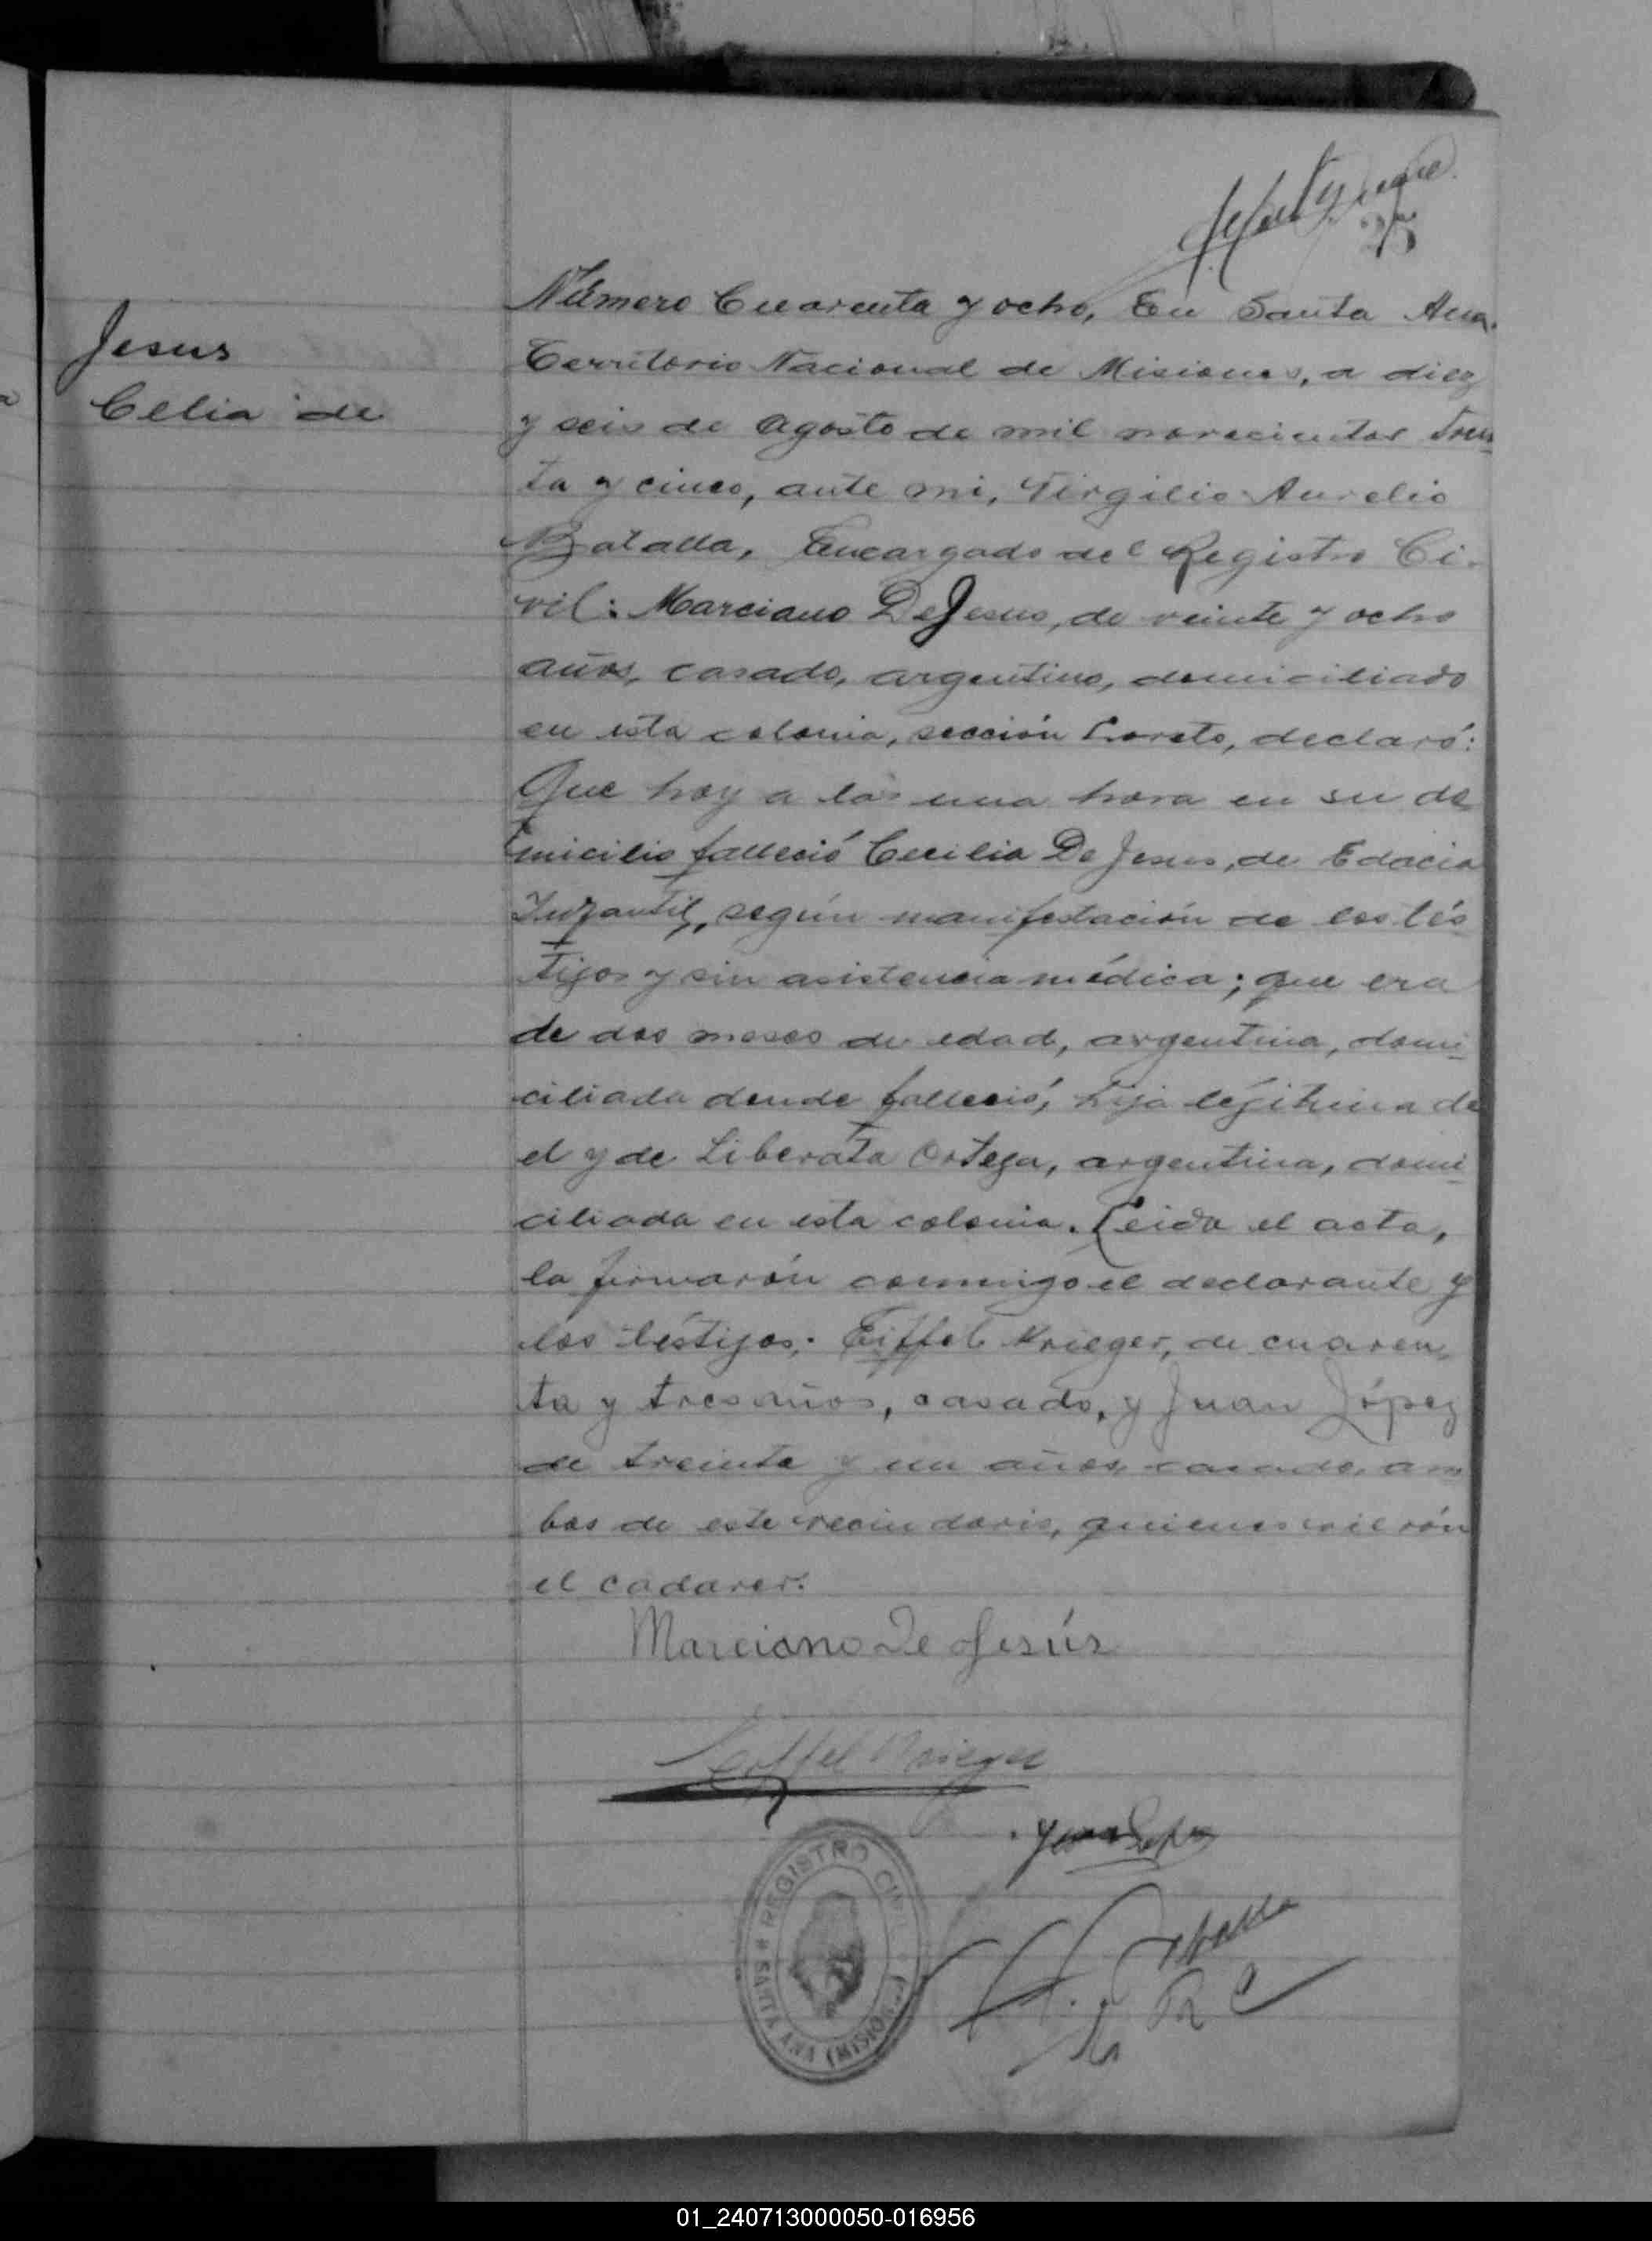 25
Jesus
Celia de
Número Cuarenta y ocho, En Santa Ana.
Territorio Nacional de Misiones, a diez
y seis de Agosto de mil novecientos trein
ta y cinco, ante mi, Virgilio Aurelio
Batalla, Encargado del Registro Ci-
vil: Marciano De Jesus, de veinte y ocho
años, casado, argentino, domiciliado
en esta colonia, sección Loreto, declaró:
Que hoy a las una hora en su do
micilio falleció Cecilia De Jesus, de Edacia
Infantil, según manifestación de los tés
tijos y sin asistencia médica; que era
de dos meses de edad, argentina, domi
ciliada donde falleció, hija léjitima de
el y de Liberata Ortega, argentina, domi
ciliada en esta colonia. Leida el acta,
la firmarón conmigo el declarante y
los téstijos: Eiffel Krieger, de cuaren
ta y tres años, casado, y Juan López
de treinta y un años, casado, am
bos de este vecindario, quienes
el cadaver.
Marciano De Jesús
Eiffel Krieger
Juan Lopez
REGISTRO CIVIL
SANTA ANA (MISIONES)